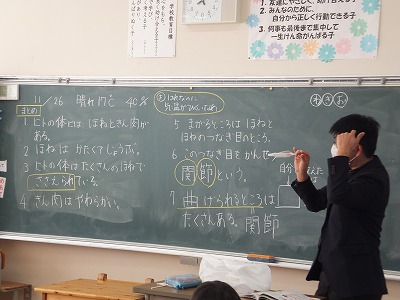 学校教育目標
1 友達にやさしく、助け合える子
2 みんなのために、
自分から正しく行動できる子
3 何事も最後まで集中して
一生けん命がんばる子
11/26 晴れ 17℃ 40%
まとめ
1 ヒトの体には ほねときん肉が
ある。
2 ほねは かたくてじょうぶ。
3 ヒトの体はたくさんのほねで
ささえられている。
4 きん肉はやわらかい。
5 まがるところは ほねと
ほねのつなぎ目のところ。
6 このつなぎ目をかんせ
関節という。
7 曲げられるところは
たくさんある。関節
め き お
自分